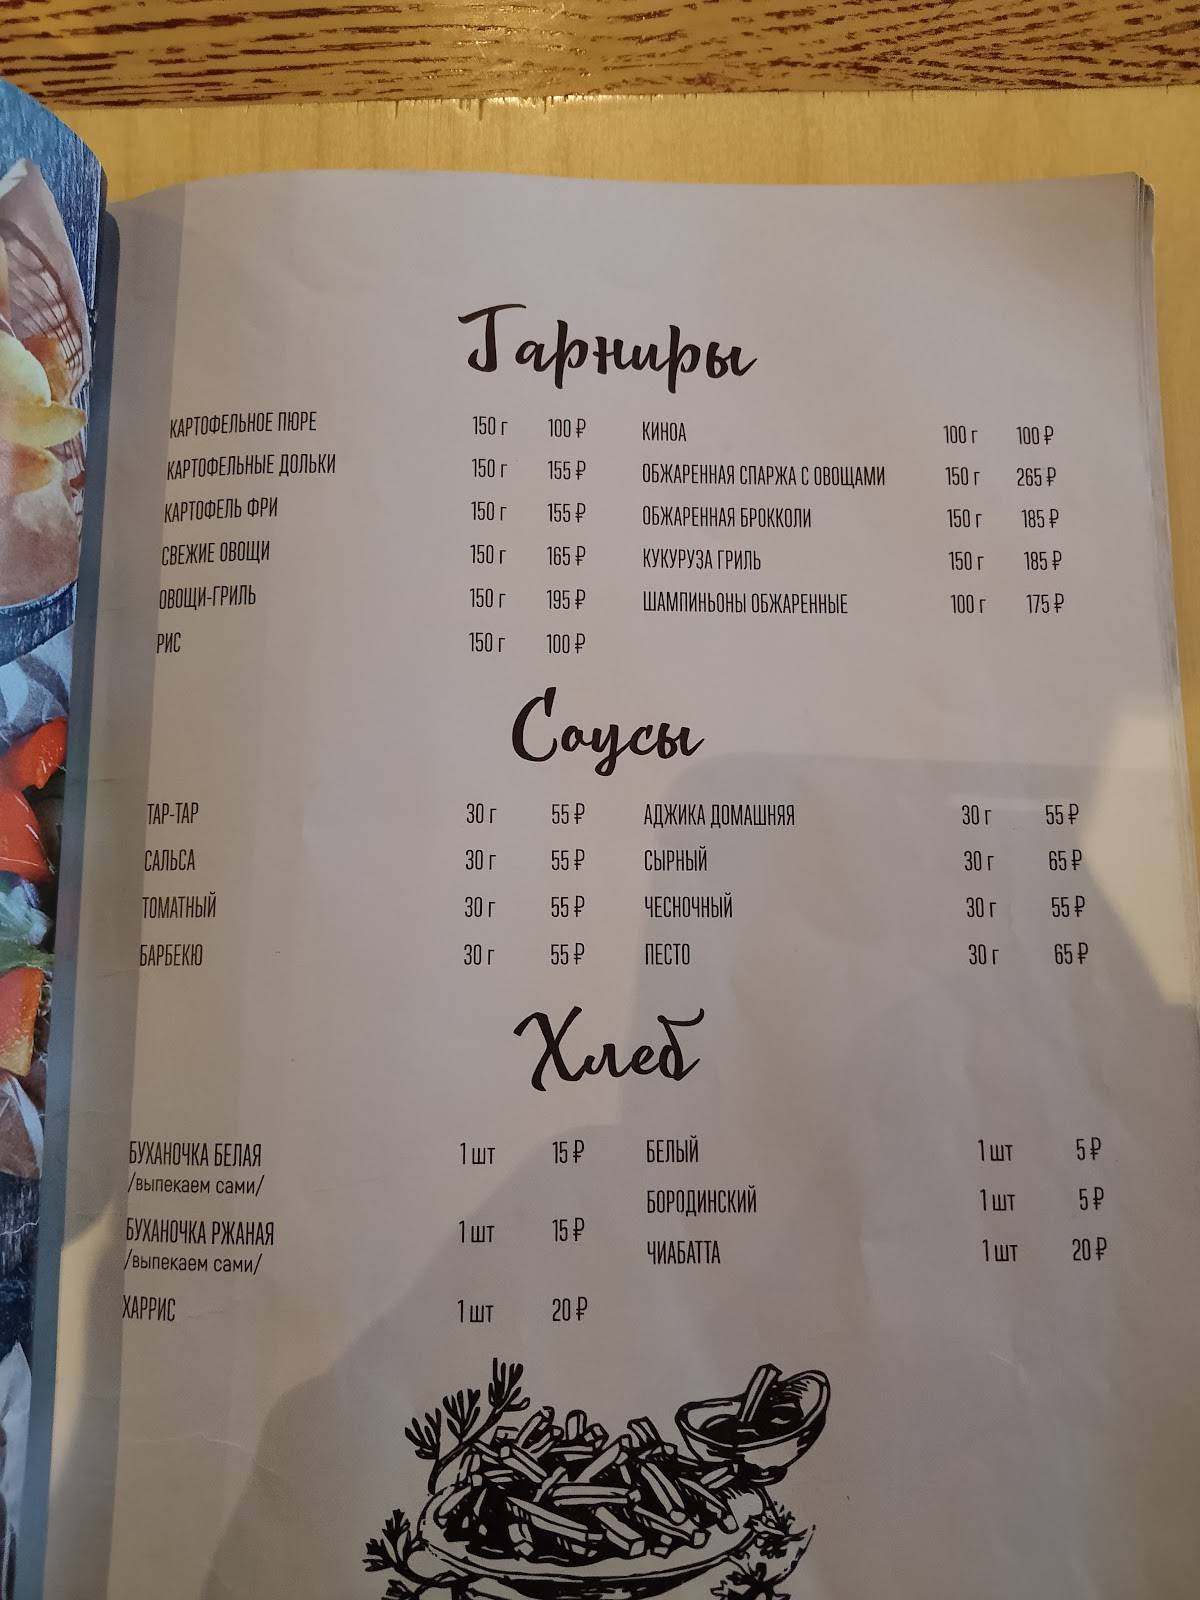 Гарниры
КАРТОФЕЛЬНОЕ ПЮРЕ 150 г 100 ₽
КАРТОФЕЛЬНЫЕ ДОЛЬКИ 150 г 155 ₽
КАРТОФЕЛЬ ФРИ 150 г 155 ₽
СВЕЖИЕ ОВОЩИ 150 г 165 ₽
ОВОЩИ-ГРИЛЬ 150 г 195 ₽
РИС 150 г 100 ₽
КИНОА 100 г 100 ₽
ОБЖАРЕННАЯ СПАРЖА С ОВОЩАМИ 150 г 265 ₽
ОБЖАРЕННАЯ БРОККОЛИ 150 г 185 ₽
КУКУРУЗА ГРИЛЬ 150 г 185 ₽
ШАМПИНЬОНЫ ОБЖАРЕННЫЕ 100 г 175 ₽
Соусы
ТАР-ТАР 30 г 55 ₽
САЛЬСА 30 г 55 ₽
ТОМАТНЫЙ 30 г 55 ₽
БАРБЕКЮ 30 г 55 ₽
АДЖИКА ДОМАШНЯЯ 30 г 55 ₽
СЫРНЫЙ 30 г 65 ₽
ЧЕСНОЧНЫЙ 30 г 55 ₽
ПЕСТО 30 г 65 ₽
Хлеб
БУХАНОЧКА БЕЛАЯ 1 шт 15 ₽
/выпекаем сами/
БУХАНОЧКА РЖАНАЯ 1 шт 15 ₽
/выпекаем сами/
ХАРРИС 1 шт 20 ₽
БЕЛЫЙ 1 шт 5 ₽
БОРОДИНСКИЙ 1 шт 5 ₽
ЧИАБАТТА 1 шт 20 ₽